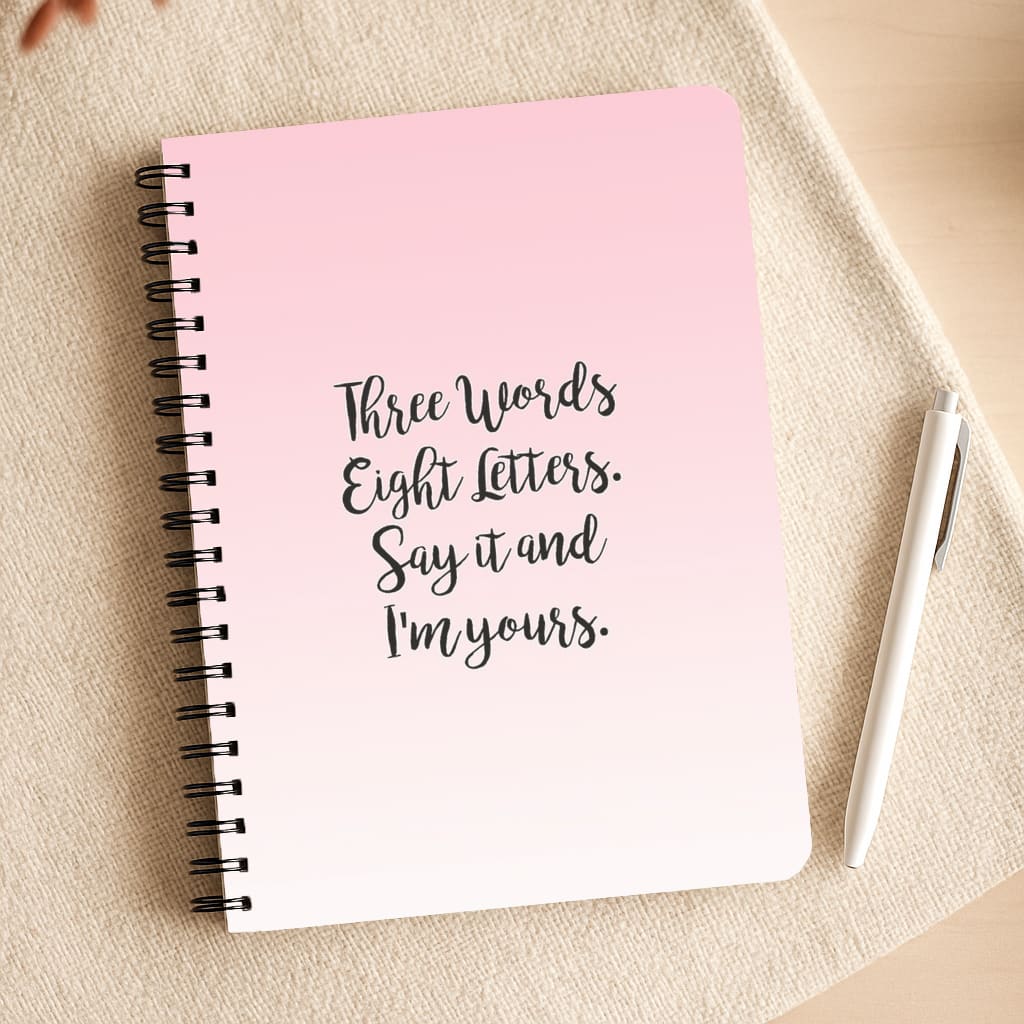 Three Words
Eight Letters.
Say it and
I'm yours.